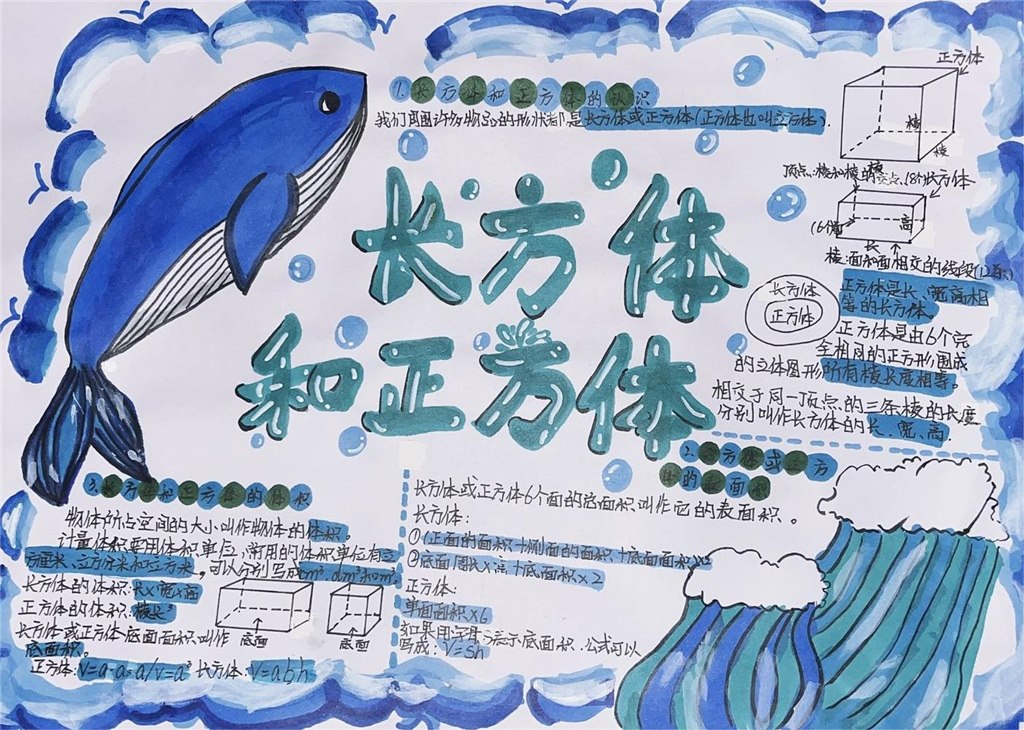 长方体
和正方体
1.长方体和正方体的认识
我们周围许多物品的形状都是长方体或正方体(正方体也叫立方体).
正方体
棱
棱
顶点:棱和棱的交点.(8个)长方体
棱
(6个)面
高
长
棱:面和面相交的线段(12条)
长方体
正方体
正方体是长、宽、高相
等的长方体。
正方体是由6个完
全相同的正方形围成
的立体图形所有棱长度相等。
相交于同一顶点的三条棱的长度
分别叫作长方体的长、宽、高.
2.长方体或正方
体的表面积
长方体或正方体6个面的总面积叫作它的表面积。
长方体:
①(正面的面积+侧面的面积+底面面积)×2
②底面周长×高+底面积×2
正方体:
单面面积×6
如果用字母S表示底面积.公式可以
写成:V=Sh
3.长方体和正方体的体积
物体所占空间的大小叫作物体的体积。
计量体积要用体积单位,常用的体积单位有立
方厘米、立方分米和立方米,可以分别写成cm³、dm³和m³.
长方体的体积:长×宽×高
正方体的体积:棱长³
长方体或正方体底面面积叫作
底面积。
底面
底面
正方体:V=a·a·a/V=a³ 长方体:V=abh